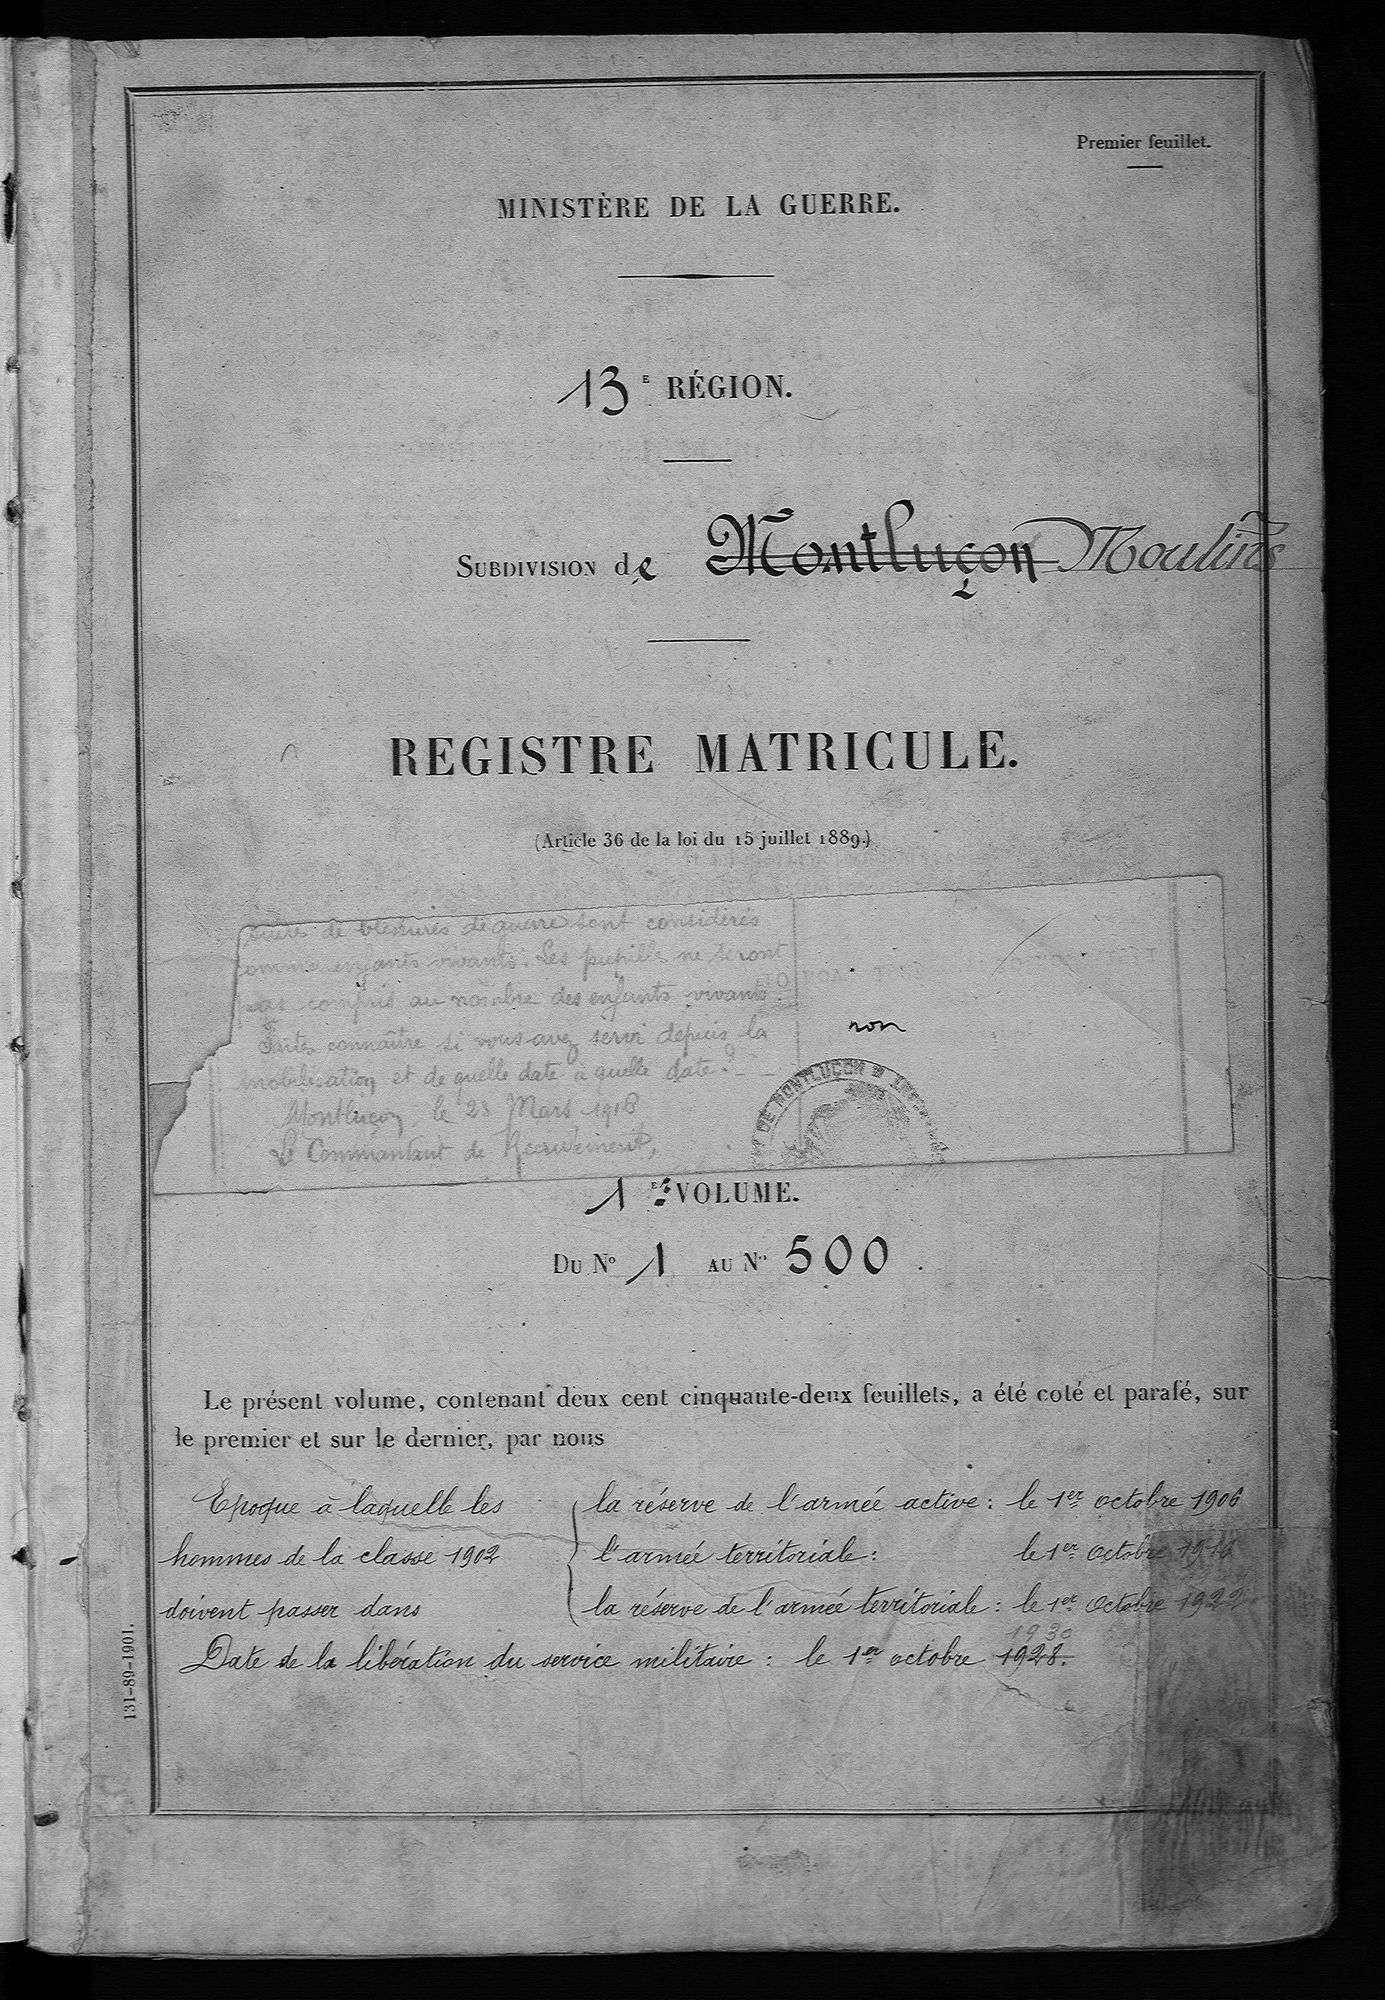 Premier feuillet.
MINISTÈRE DE LA GUERRE.
13E RÉGION.
SUBDIVISION de Montluçon Moulins
REGISTRE MATRICULE.
(Article 36 de la loi du 15 juillet 1889.)
suites de blessures de guerre sont considérés
comme enfants vivants. Les pupilles ne seront
pas compris au nombre des enfants vivants.
Faites connaître si vous avez servi depuis la
mobilisation et de quelle date à quelle date ?
non
Montluçon, le 23 Mars 1916
Le Commandant de Recrutement,
DE MONTLUÇON
1er VOLUME.
DU No 1 AU No 500.
Le présent volume, contenant deux cent cinquante-deux feuillets, a été coté et parafé, sur
le premier et sur le dernier, par nous
Epoque à laquelle les
hommes de la classe 1902
doivent passer dans
la réserve de l'armée active : le 1er octobre 1906
l'armée territoriale : le 1er octobre 1916
la réserve de l'armée territoriale : le 1er octobre 1922
1930
Date de la libération du service militaire : le 1er octobre 1928.
131-89-1901.